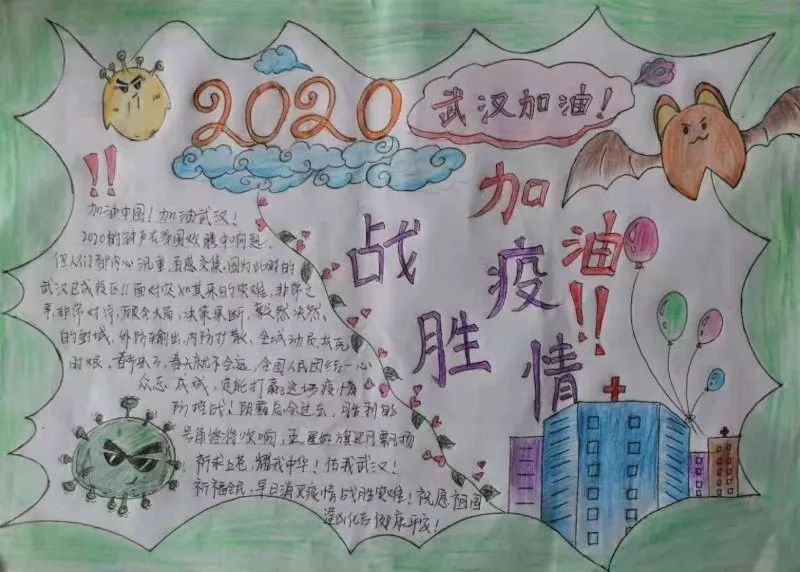 2020
武汉加油！
加油!!
战胜疫情
!!
加油中国！加油武汉！
2020的钟声在举国欢腾中响起，
但人们却内心沉重，百感交集，因为此时的
武汉已成疫区!!面对突如其来的灾难，非常之
事，非常对待，顾全大局，决策果断，毅然决然
的封城，外防输出，内防扩散，全城动员，共克
时艰，春节来了，春天就不会远，全国人民团结一心
众志成城，定能打赢这场疫情
防控战！阴霾总会过去，胜利的
号角终将吹响，五星红旗迎风飘扬
耀我中华！佑我武汉！
祈福全民，早日消灭疫情战胜灾难！祝愿祖国
健康平安！